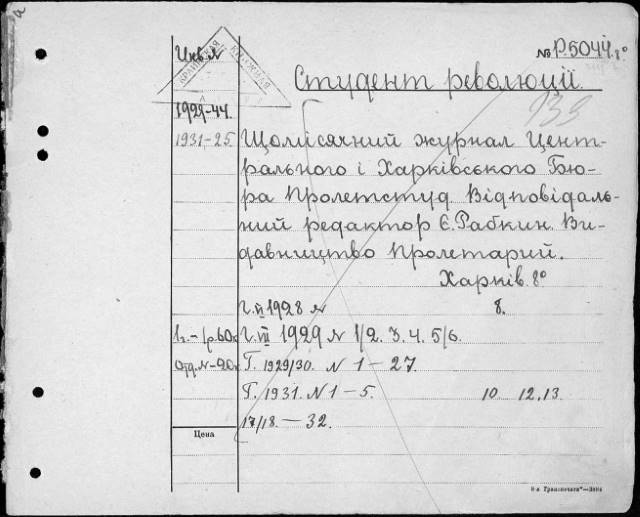 Инв. №
№ Р.5044. 8º
УКРАИНСКАЯ КНИЖНАЯ
Студент революції.
133
1929-44.
1931-25.
Щомісячний журнал Цент-
рального і Харківського Бю-
ра Пролетстуд. Відповідаль-
ний редактор Є. Рабкин. Ви-
давництво Пролетарий.
Харків. 8º
Г. II 1928 № 8.
1 г. – 1р. 60к. Г. III 1929 № 1/2. 3. 4. 5/6.
Отд. № – 20к. Г. 1929/30. № 1 – 27.
Г. 1931. № 1 – 5. 10 12. 13.
17/18. – 32.
Цена